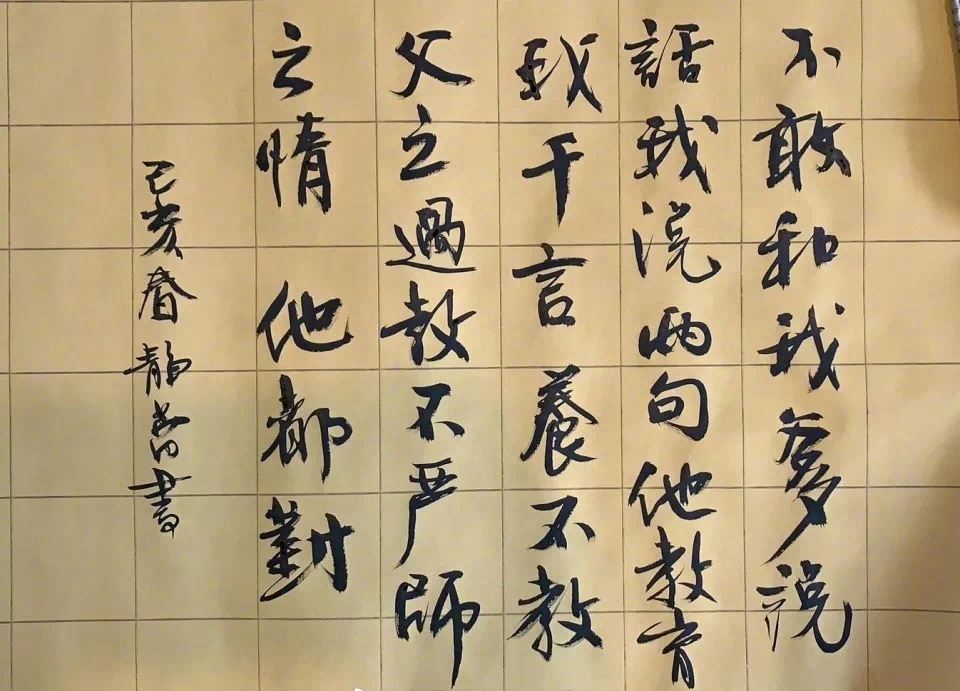 不敢和我爹説
話我説两句他教育
我千言養不教
父之過教不严師
之情 他都對
己亥春静尚書